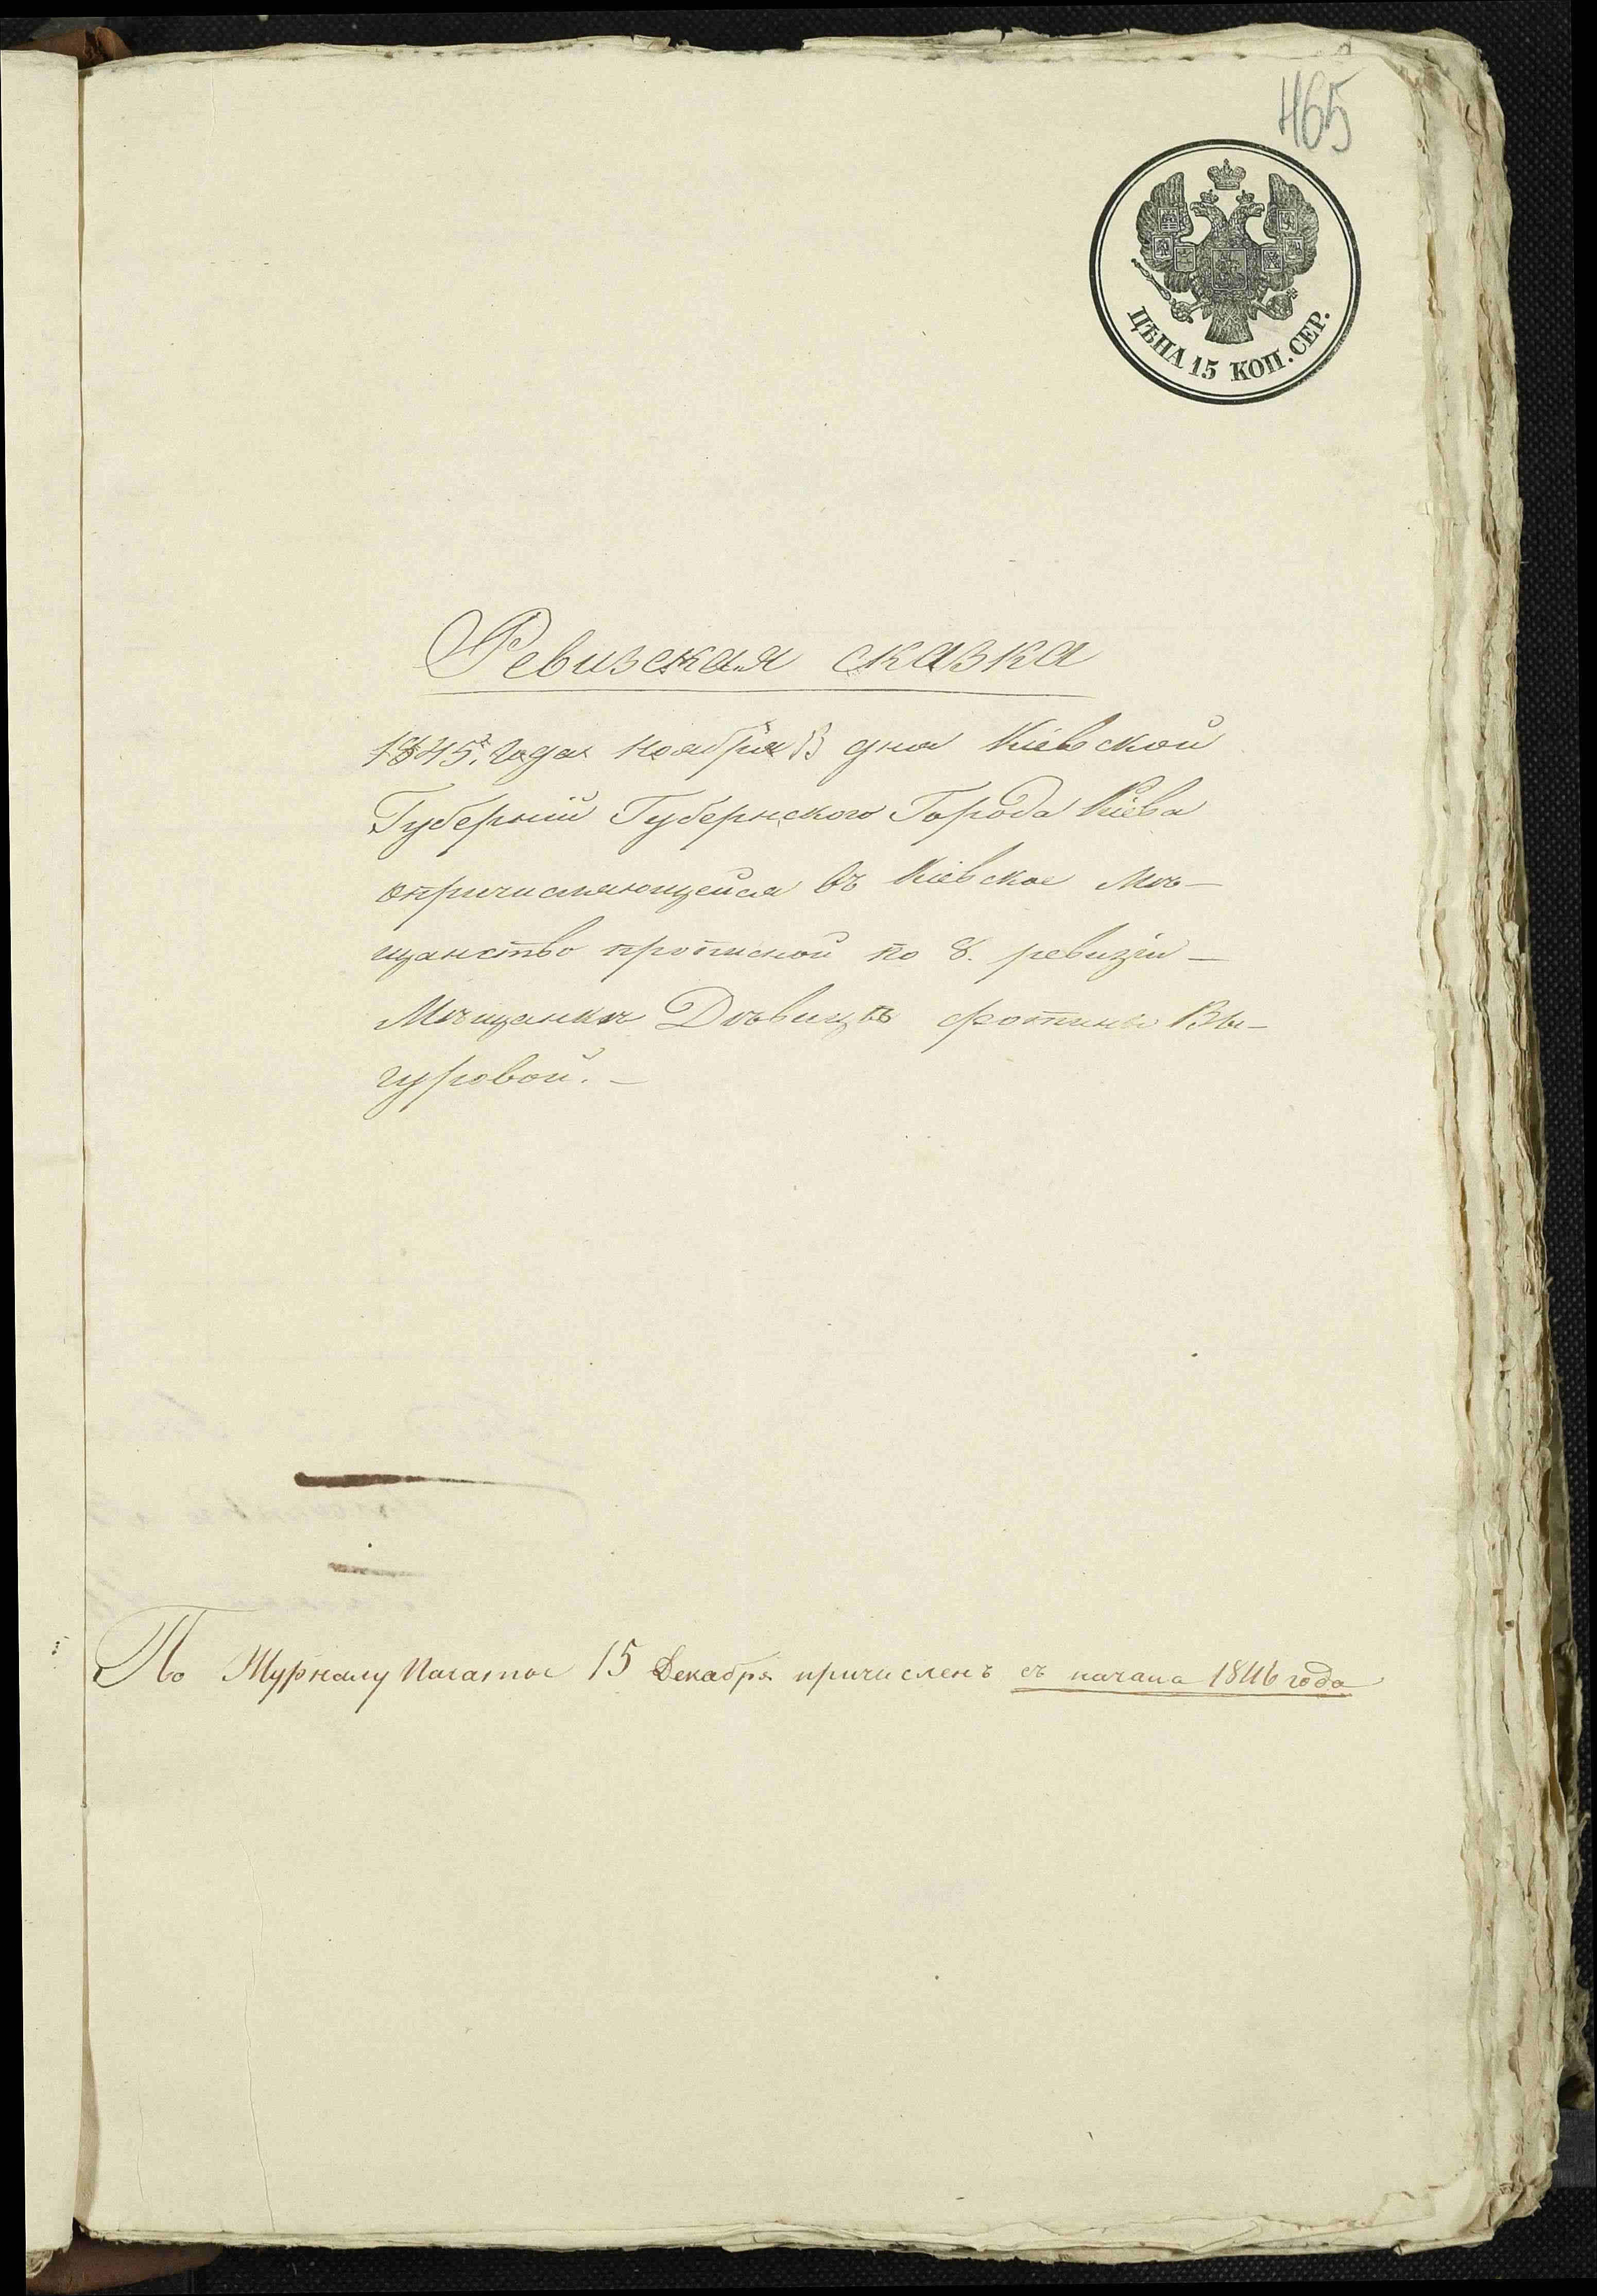 465
ЦѢНА 15 КОП. СЕР.
Ревизская сказка
1845. года Ноября дня Кіевской
Губерніи Губернского Города Кіева
опричисляющейся въ Кіевское Мѣ-
щанство прописной по 8. ревизіи -
Мѣщанкѣ Дѣвицѣ Фотинѣ Вы-
гуровой. -
По Журналу Палаты 15 Декабря причисленъ съ начала 1846 года